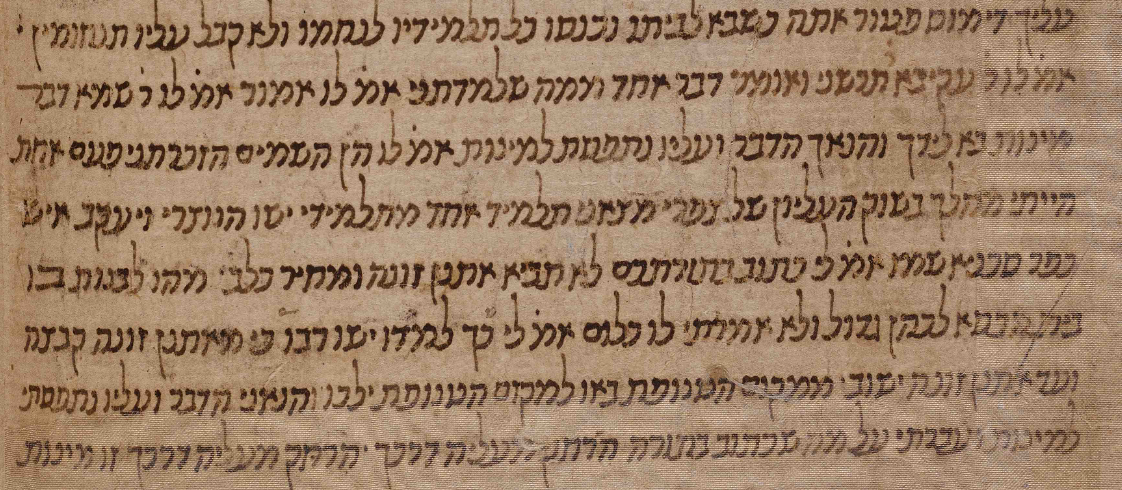 עליך דימוס פטור אתה כשבא לביתו נכנסו כל תלמידיו לנחמו ולא קבל עליו תנחומין
אמ׳ לו ר׳ עקיבא תרשני ואומר דבר אחד ממה שלמדתני אמ׳ לו אמור אמ׳ לו ר׳ שמא דבר
מינות בא לידך והנאך הדבר ועליו נתפסת למינות אמ׳ לו הן השמים הזכרתני פעם אחת
הייתי מהלך בשוק העליון של צפרי מצאני תלמיד אחד מתלמידי ישו הנוצרי ויעקב איש
כפר סכניא שמו אמ׳ לי כתוב בתורתכם לא תביא אתנן זונה ומחיר כלב מהו לבנות בו
בית כסא לכהן גדול ולא אמרתי לו כלום אמ׳ לי כך למדו ישו רבו כי מאתנן זונה קבצה
ועד אתנן זונה ישובו ממקום הטנופת באו למקום הטנופת ילכו והנאני הדבר ועליו נתפסתי
למינות ועברתי על מה שכתוב בתורה הרחק מעליה דרכך הרחק מעליה דרכך זו מינות